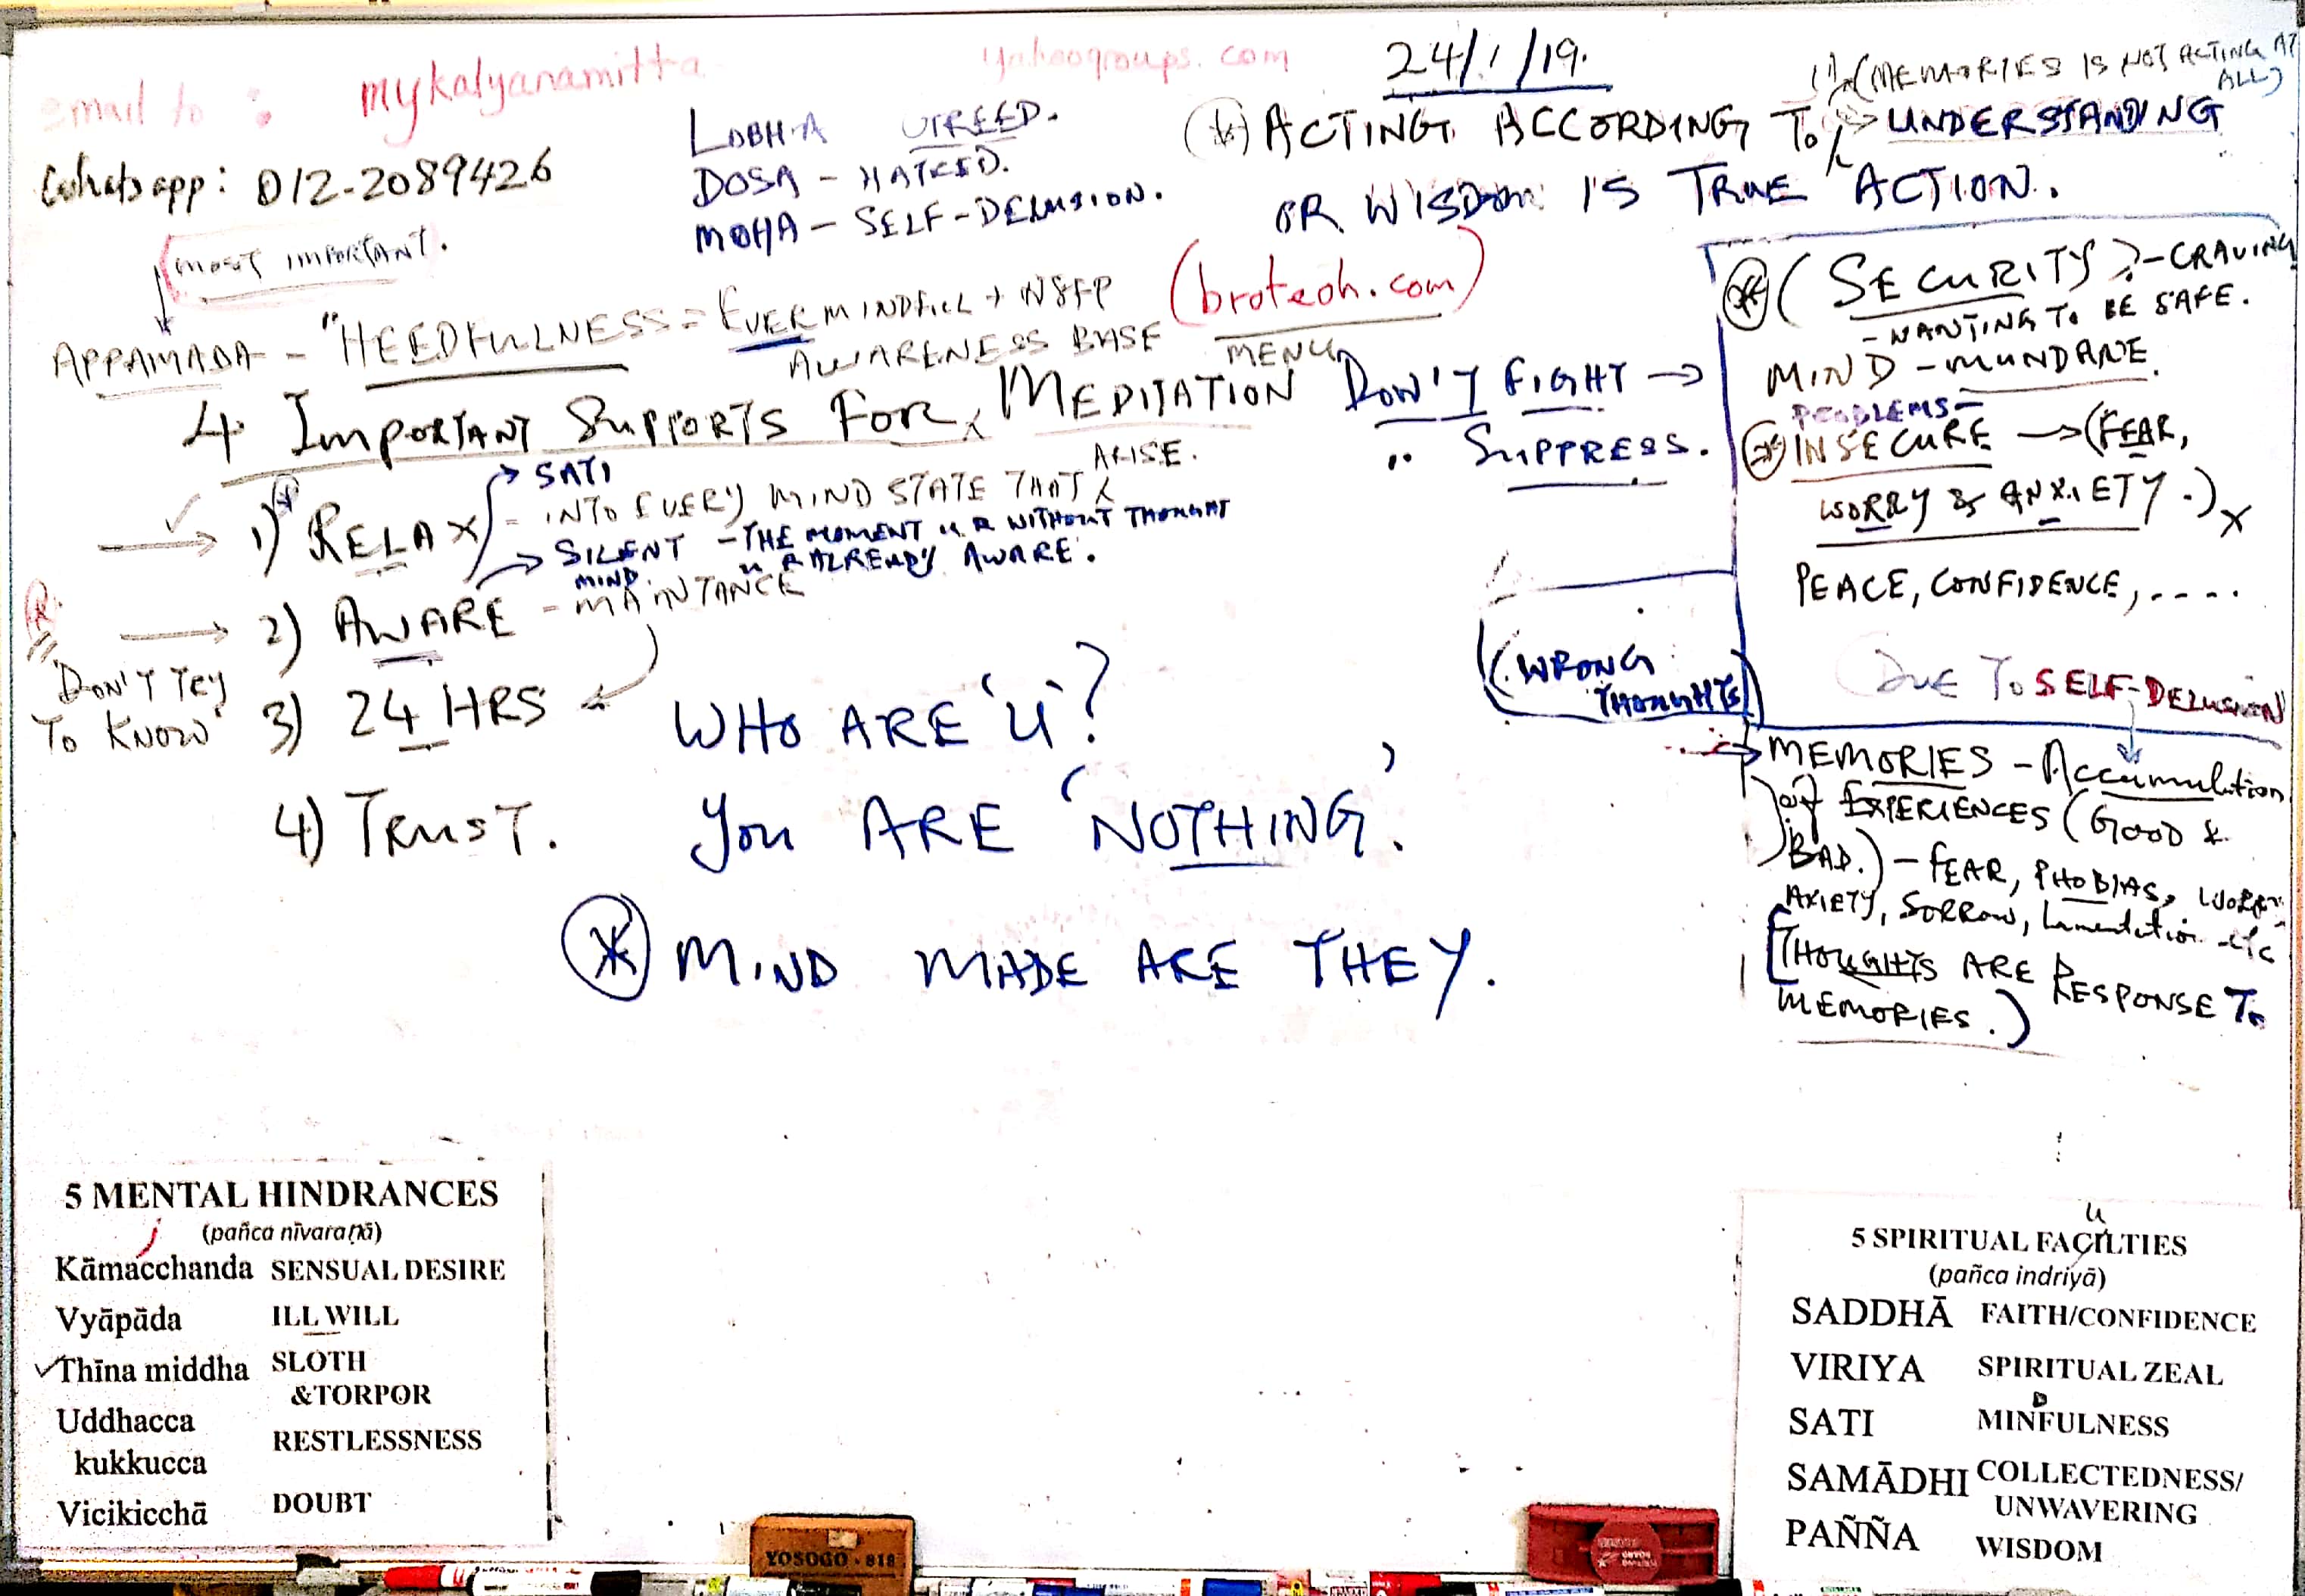 email to : mykalyanamitta yahoogroups.com
Whatsapp: 012-2089426
LOBHA GREED.
DOSA - HATRED.
MOHA - SELF-DELUSION.
24/1/19.
(MEMORIES IS NOT ACTING AT ALL)
(*) ACTING ACCORDING TO UNDERSTANDING
OR WISDOM IS TRUE ACTION.
(MOST IMPORTANT.
APPAMADA - "HEEDFULLNESS = EVER MINDFULL + N8FP
AWARENESS BASE
(broteoh.com)
MENU
4 IMPORTANT SUPPORTS FOR MEDITATION
DON'T FIGHT →
" SUPPRESS.
1) RELAX
SATI
= INTO EVERY MIND STATE THAT ARISE.
SILENT MIND. - THE MOMENT U R WITHOUT THOUGHT
U R ALREADY AWARE.
→ 2) AWARE - MAINTANCE
'DON'T TRY
TO KNOW'
3) 24 HRS
4) TRUST.
WHO ARE 'U'?
You ARE 'NOTHING'.
(*) MIND MADE ARE THEY.
(*) (SECURITY)? - CRAVING
- WANTING TO BE SAFE.
MIND - MUNDANE.
PROBLEMS -
(*) INSECURE → (FEAR,
WORRY & ANXIETY.)
PEACE, CONFIDENCE, ....
DUE TO SELF-DELUSION
(WRONG
THOUGHTS)
→ MEMORIES - Accumulation
of EXPERIENCES (GOOD &
BAD.) - FEAR, PHOBIAS, WORRY
AXIETY, SORROW, Lamentation etc
[THOUGHTS ARE RESPONSE To
MEMORIES.)
5 MENTAL HINDRANCES
(pañca nīvaraṇā)
Kāmacchanda SENSUAL DESIRE
Vyāpāda ILL WILL
Thīna middha SLOTH
&TORPOR
Uddhacca
kukkucca RESTLESSNESS
Vicikicchā DOUBT
5 SPIRITUAL FACULTIES
(pañca indriyā)
SADDHĀ FAITH/CONFIDENCE
VIRIYA SPIRITUAL ZEAL
SATI MINDFULNESS
SAMĀDHI COLLECTEDNESS/
UNWAVERING
PAÑÑA WISDOM
YOSOGO - 818